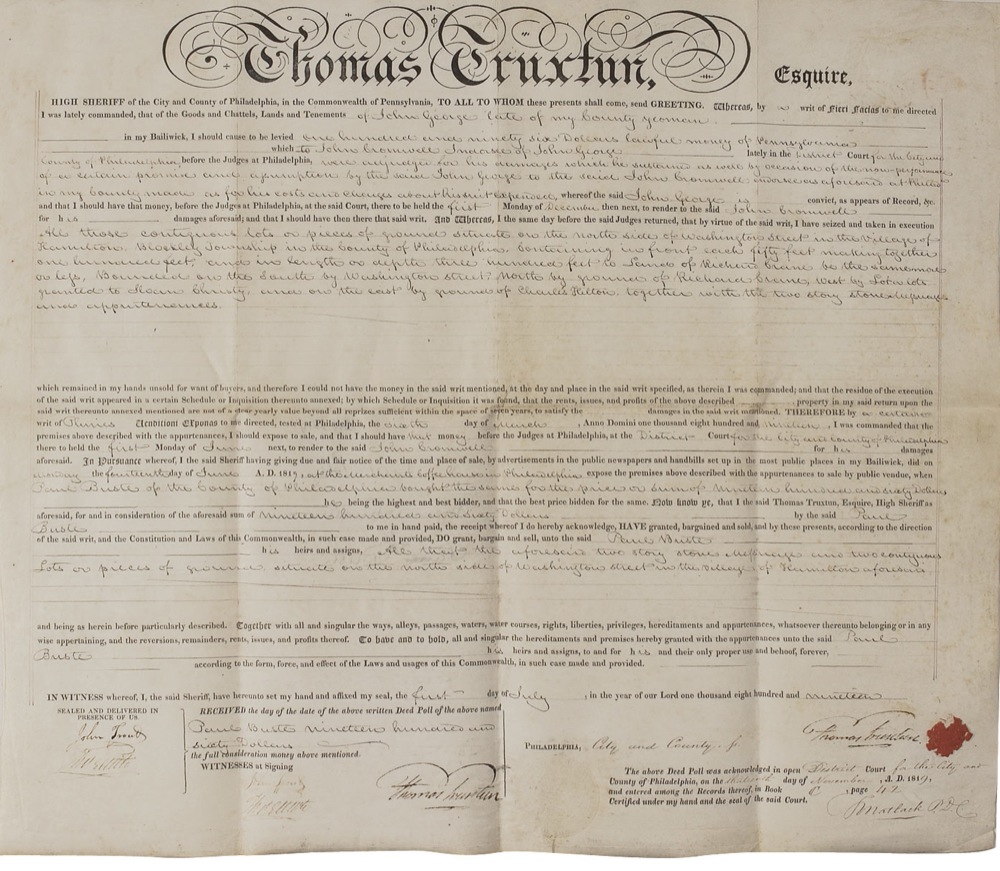 Thomas Truxtun,
Esquire,
HIGH SHERIFF of the City and County of Philadelphia, in the Commonwealth of Pennsylvania, TO ALL TO WHOM these presents shall come, send GREETING. Whereas, by a writ of Fieri Facias to me directed
I was lately commanded, that of the Goods and Chattels, Lands and Tenements of John George late of my County yeoman
in my Bailiwick, I should cause to be levied one hundred and ninety six Dollars lawful money of Pennsylvania
which to John Cromwell Indorsee of John George lately in the District Court for the City and
County of Philadelphia, before the Judges at Philadelphia, were adjudged for his damages which he sustained as well by occasion of the non-performance
of a certain promise and assumption by the said John George to the said John Cromwell indorsee as aforesaid at
in my County made as for his costs and charges about his suit expended, whereof the said John George is convict, as appears of Record, &c.
and that I should have that money, before the Judges at Philadelphia, at the said Court, there to be held the first Monday of December then next, to render to the said John Cromwell
for his damages aforesaid; and that I should have then there that said writ. And Whereas, I the same day before the said Judges returned, that by virtue of the said writ, I have seized and taken in execution
All those contiguous lots or pieces of ground situate on the north side of Washington street in the Village of
Hamilton, Blockley Township in the County of Philadelphia, containing in front each fifty feet making together
one hundred feet, and in length or depth three hundred feet to Lands of Richard Crane be the same more
or less, Bounded on the South by Washington street, North by ground of Richard Crane, West by Lot
granted to Sloan Christy, and on the east by ground of Charles together with the two story stone Messuage
and appurtenances.
which remained in my hands unsold for want of buyers, and therefore I could not have the money in the said writ mentioned, at the day and place in the said writ specified, as therein I was commanded; and that the residue of the execution
of the said writ appeared in a certain Schedule or Inquisition thereunto annexed; by which Schedule or Inquisition it was found, that the rents, issues, and profits of the above described property in my said return upon the
said writ thereunto annexed mentioned are not of a clear yearly value beyond all reprizes sufficient within the space of seven years, to satisfy the damages in the said writ mentioned. THEREFORE by a certain
writ of Venditioni Exponas to me directed, tested at Philadelphia, the sixth day of March, Anno Domini one thousand eight hundred and nineteen, I was commanded that the
premises above described with the appurtenances, I should expose to sale, and that I should have that money before the Judges at Philadelphia, at the District Court for the City and County of Philadelphia
there to held the first Monday of June next, to render to the said John Cromwell for his damages
aforesaid. In Pursuance whereof, I the said Sheriff having giving due and fair notice of the time and place of sale, by advertisements in the public newspapers and handbills set up in the most public places in my Bailiwick, did on
the fourteenth day of June A. D. 1819, at the merchants Coffee house Philadelphia expose the premises above described with the appurtenances to sale by public vendue, when
Paul Buste of the County of Philadelphia bought the same for the price or sum of nineteen hundred and sixty Dollars
he being the highest and best bidder, and that the best price bidden for the same. Now know ye, that I the said Thomas Truxtun, Esquire, High Sheriff as
aforesaid, for and in consideration of the aforesaid sum of nineteen hundred and sixty Dollars by the said Paul
Buste to me in hand paid, the receipt whereof I do hereby acknowledge, HAVE granted, bargained and sold, and by these presents, according to the direction
of the said writ, and the Constitution and Laws of this Commonwealth, in such case made and provided, DO grant, bargain and sell, unto the said Paul Buste
his heirs and assigns, All that the aforesaid two story stone Messuage and two contiguous
Lots or pieces of ground situate on the north side of Washington street in the Village of Hamilton aforesaid
and being as herein before particularly described. Together with all and singular the ways, alleys, passages, waters, water courses, rights, liberties, privileges, hereditaments and appurtenances, whatsoever thereunto belonging or in any
wise appertaining, and the reversions, remainders, rents, issues, and profits thereof. To have and to hold, all and singular the hereditaments and premises hereby granted with the appurtenances unto the said Paul
Buste his heirs and assigns, to and for his and their only proper use and behoof, forever,
according to the form, force, and effect of the Laws and usages of this Commonwealth, in such case made and provided.
IN WITNESS whereof, I, the said Sheriff, have hereunto set my hand and affixed my seal, the first day of July, in the year of our Lord one thousand eight hundred and nineteen
SEALED AND DELIVERED IN
PRESENCE OF US.
John Trout
RECEIVED the day of the date of the above written Deed Poll of the above named
Paul Buste nineteen hundred and
sixty Dollars
the full consideration money above mentioned.
WITNESSES at Signing
Thomas Truxtun
Thomas Truxtun
PHILADELPHIA, City and County. ss
The above Deed Poll was acknowledged in open District Court for the City and
County of Philadelphia, on the day of November, A. D. 1819,
and entered among the Records thereof, in Book , page 42.
Certified under my hand and the seal of the said Court.
Matlack P.D.C